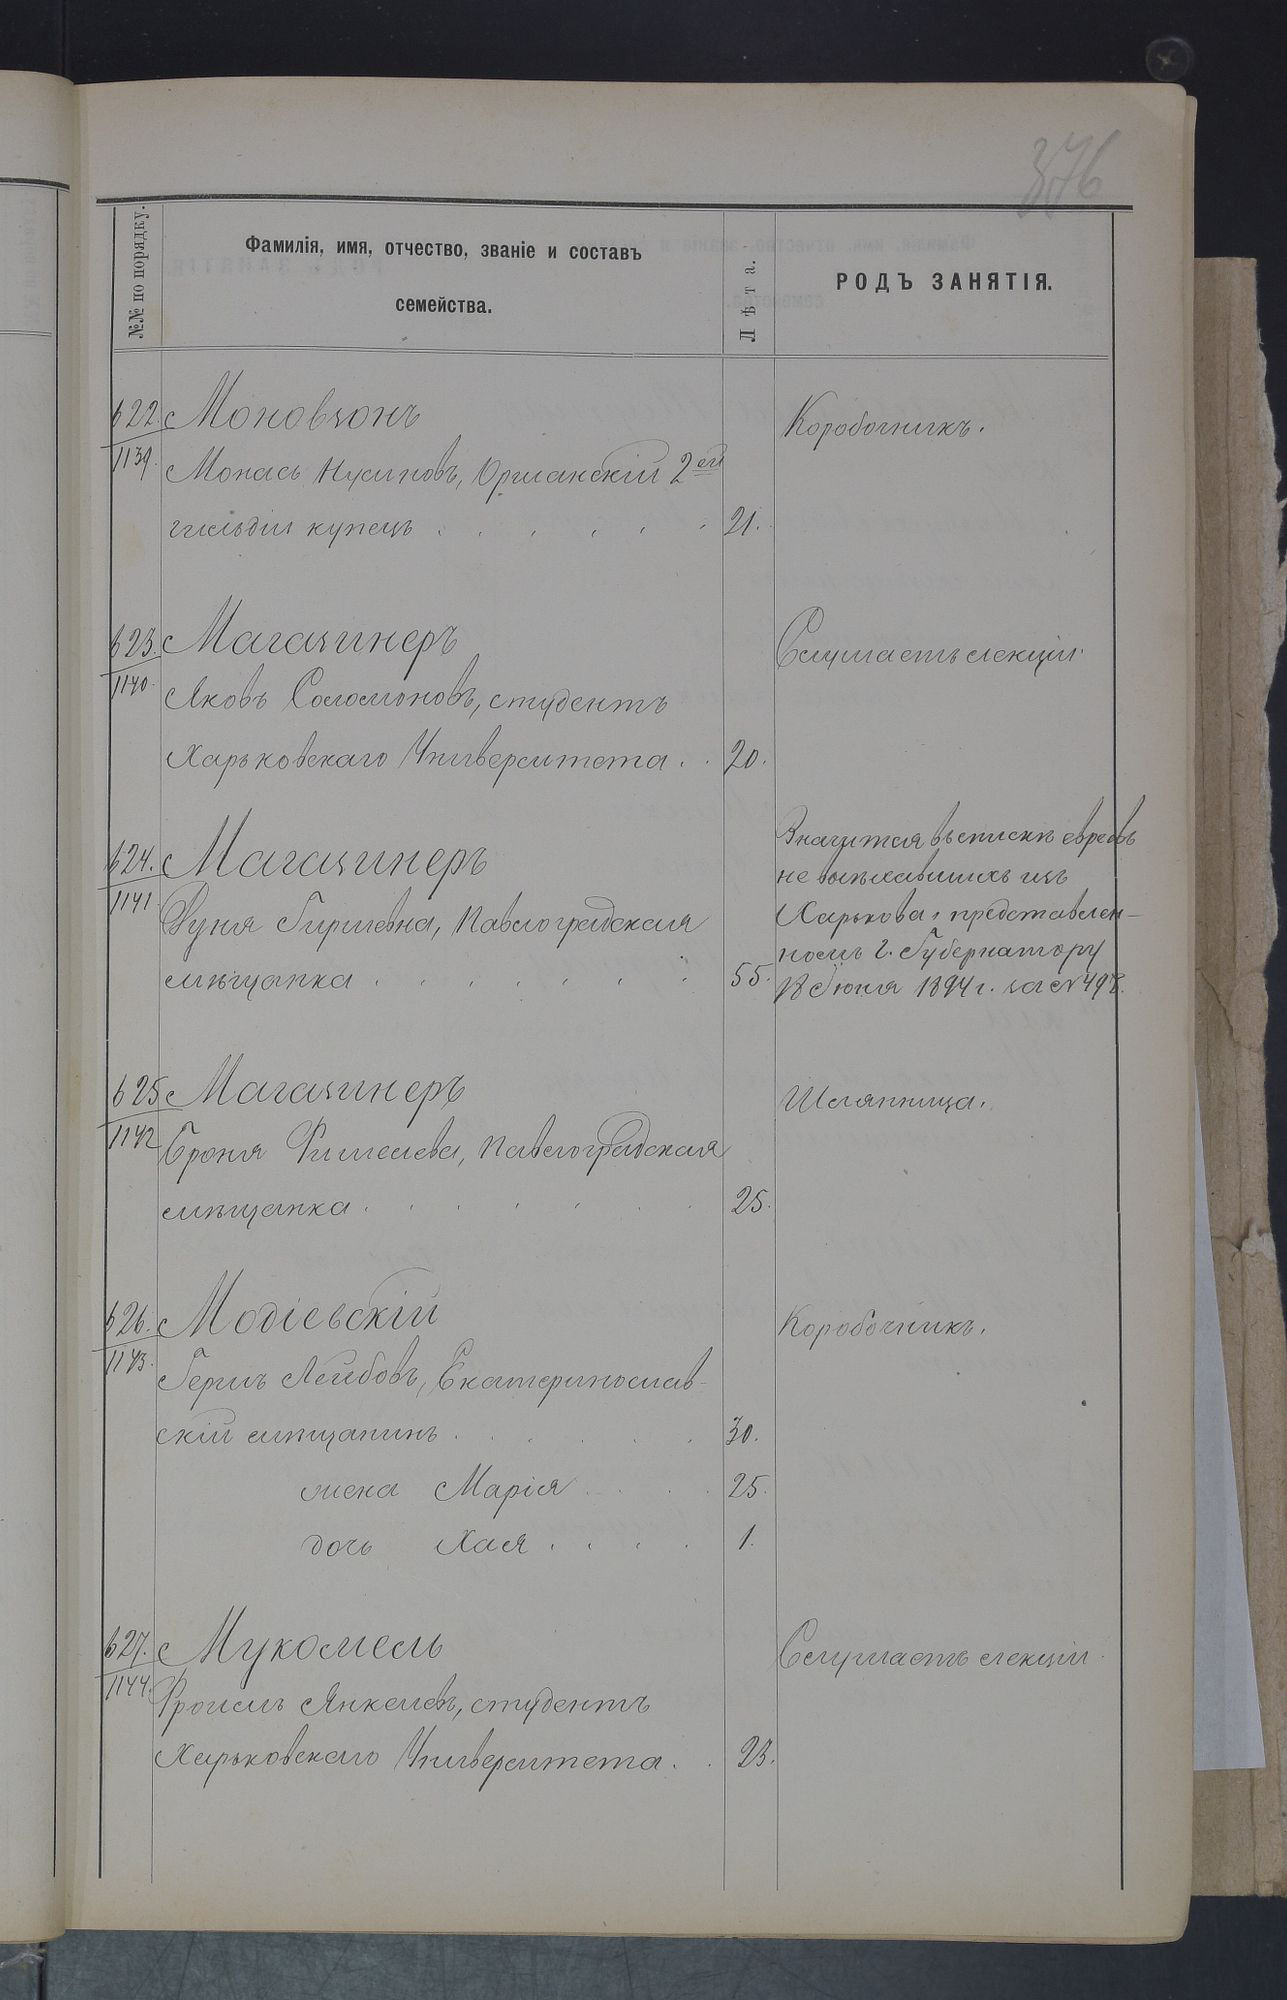 376
№№ по порядку.
Фамилія, имя, отчество, званіе и составъ
семейства.
Лѣта.
РОДЪ ЗАНЯТІЯ.
622. Моновзонъ
Коробочникъ.
1139. Монасъ Нусиновъ, Оршанскій 2ей
гильдіи купецъ . . . . . . 21.
623. Магазинеръ
Слушаетъ лекціи.
1140. Яковъ Соломоновъ, студентъ
Харьковскаго Университета . . 20.
624. Магазинеръ
1141 Дуня Гиршевна, Павлоградская
мѣщанка . . . . . . . 55.
Значится въ спискѣ евреевъ
не выѣхавшихъ изъ
Харькова, представлен-
номъ г. Губернатору
18 Іюня 1894 г. за № 498.
625 Магазинеръ
Шляпница.
1142 Броня Фишелева, Павлоградская
мѣщанка . . . . . . . 25.
626. Модіевскій
Коробочникъ.
1143. Гершъ Лейбовъ, Екатеринослав-
скій мѣщанинъ . . . . . . 30.
жена Марія . . . . 25.
дочь Хая . . . . 1.
627. Мукомель
Слушаетъ лекціи.
1144. Фроимъ Янкелевъ, студентъ
Харьковскаго Университета . . 23.